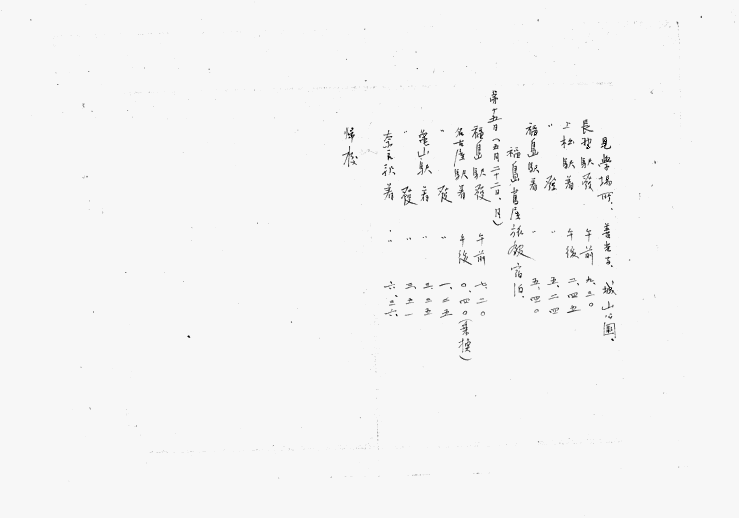 見學場所、善光寺、城山公園、
長野駅發 午前 九、三〇
上松駅着 午後 二、四五
〃 發 〃 五、二四
福島駅着 〃 五、四〇
福島 屋旅館宿泊、
第十五日（五月二十二日、月）
福島駅發 午前 七、二〇
名古屋駅着 午後 〇、四〇（乗換）
〃 發 〃 一、二五
亀山駅着 〃 三、二五
〃 發 〃 三、三一
奈良駅着 〃 六、三六
帰校